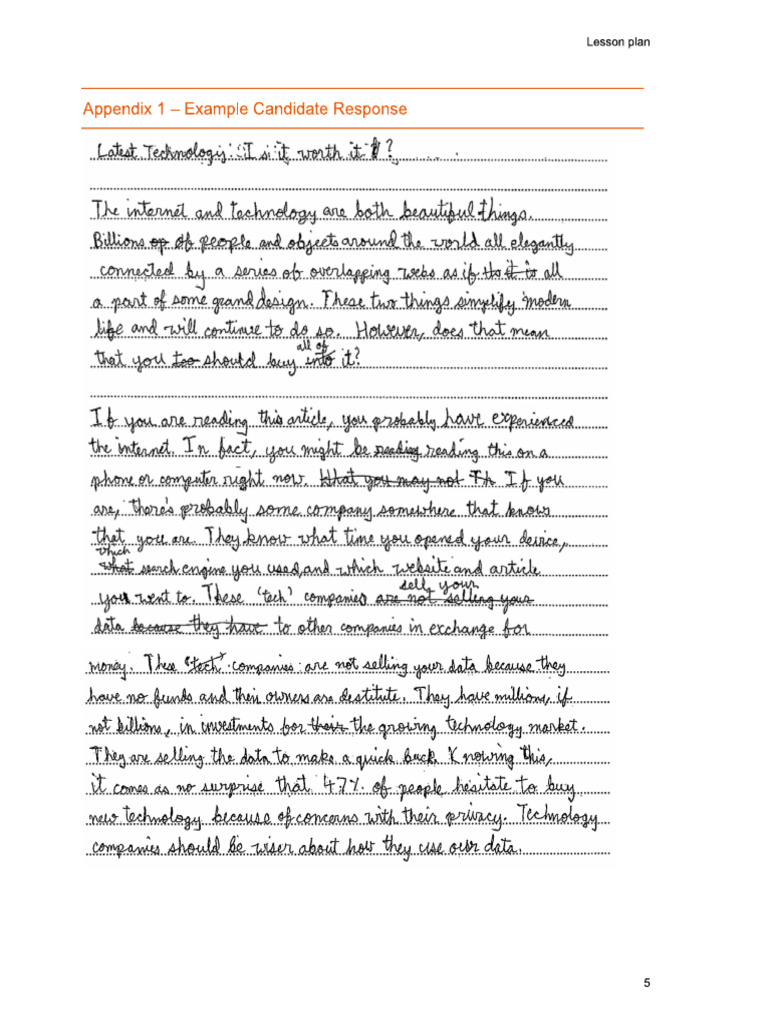 Lesson plan
Appendix 1 – Example Candidate Response
Latest Technology: Is it worth it?
The internet and technology are both beautiful things.
Billions op of people and objects around the world all elegantly
connected by a series of overlapping webs as if tho it is all
a part of some grand design. These two things simplify modern
life and will continue to do so. However, does that mean
all of
that you too should buy into it?
If you are reading this article, you probably have experienced
the internet. In fact, you might be reading reading this on a
phone or computer right now. What you may not Th If you
are, there's probably some company somewhere that knows
that you are. They know what time you opened your device,
which
what search engine you used, and which website and article
sell your
you went to. These 'tech' companies are not selling your
data because they have to other companies in exchange for
money. These 'tech' companies are not selling your data because they
have no funds and their owners are destitute. They have millions, if
not billions, in investments for their the growing technology market.
They are selling the data to make a quick buck. Knowing this,
it comes as no surprise that 47% of people hesitate to buy
new technology because of concerns with their privacy. Technology
companies should be wiser about how they use our data.
5